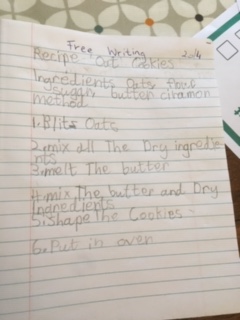 Free Writing
Recipe Oat Cookies
Ingredients Oats flour
Sugar butter cinamon
method
1. Blits Oats
2. mix all The Dry ingredie
nts
3. melt The butter
4. mix The butter and Dry
Ingredients
5. shape the Cookies
6. Put in oven